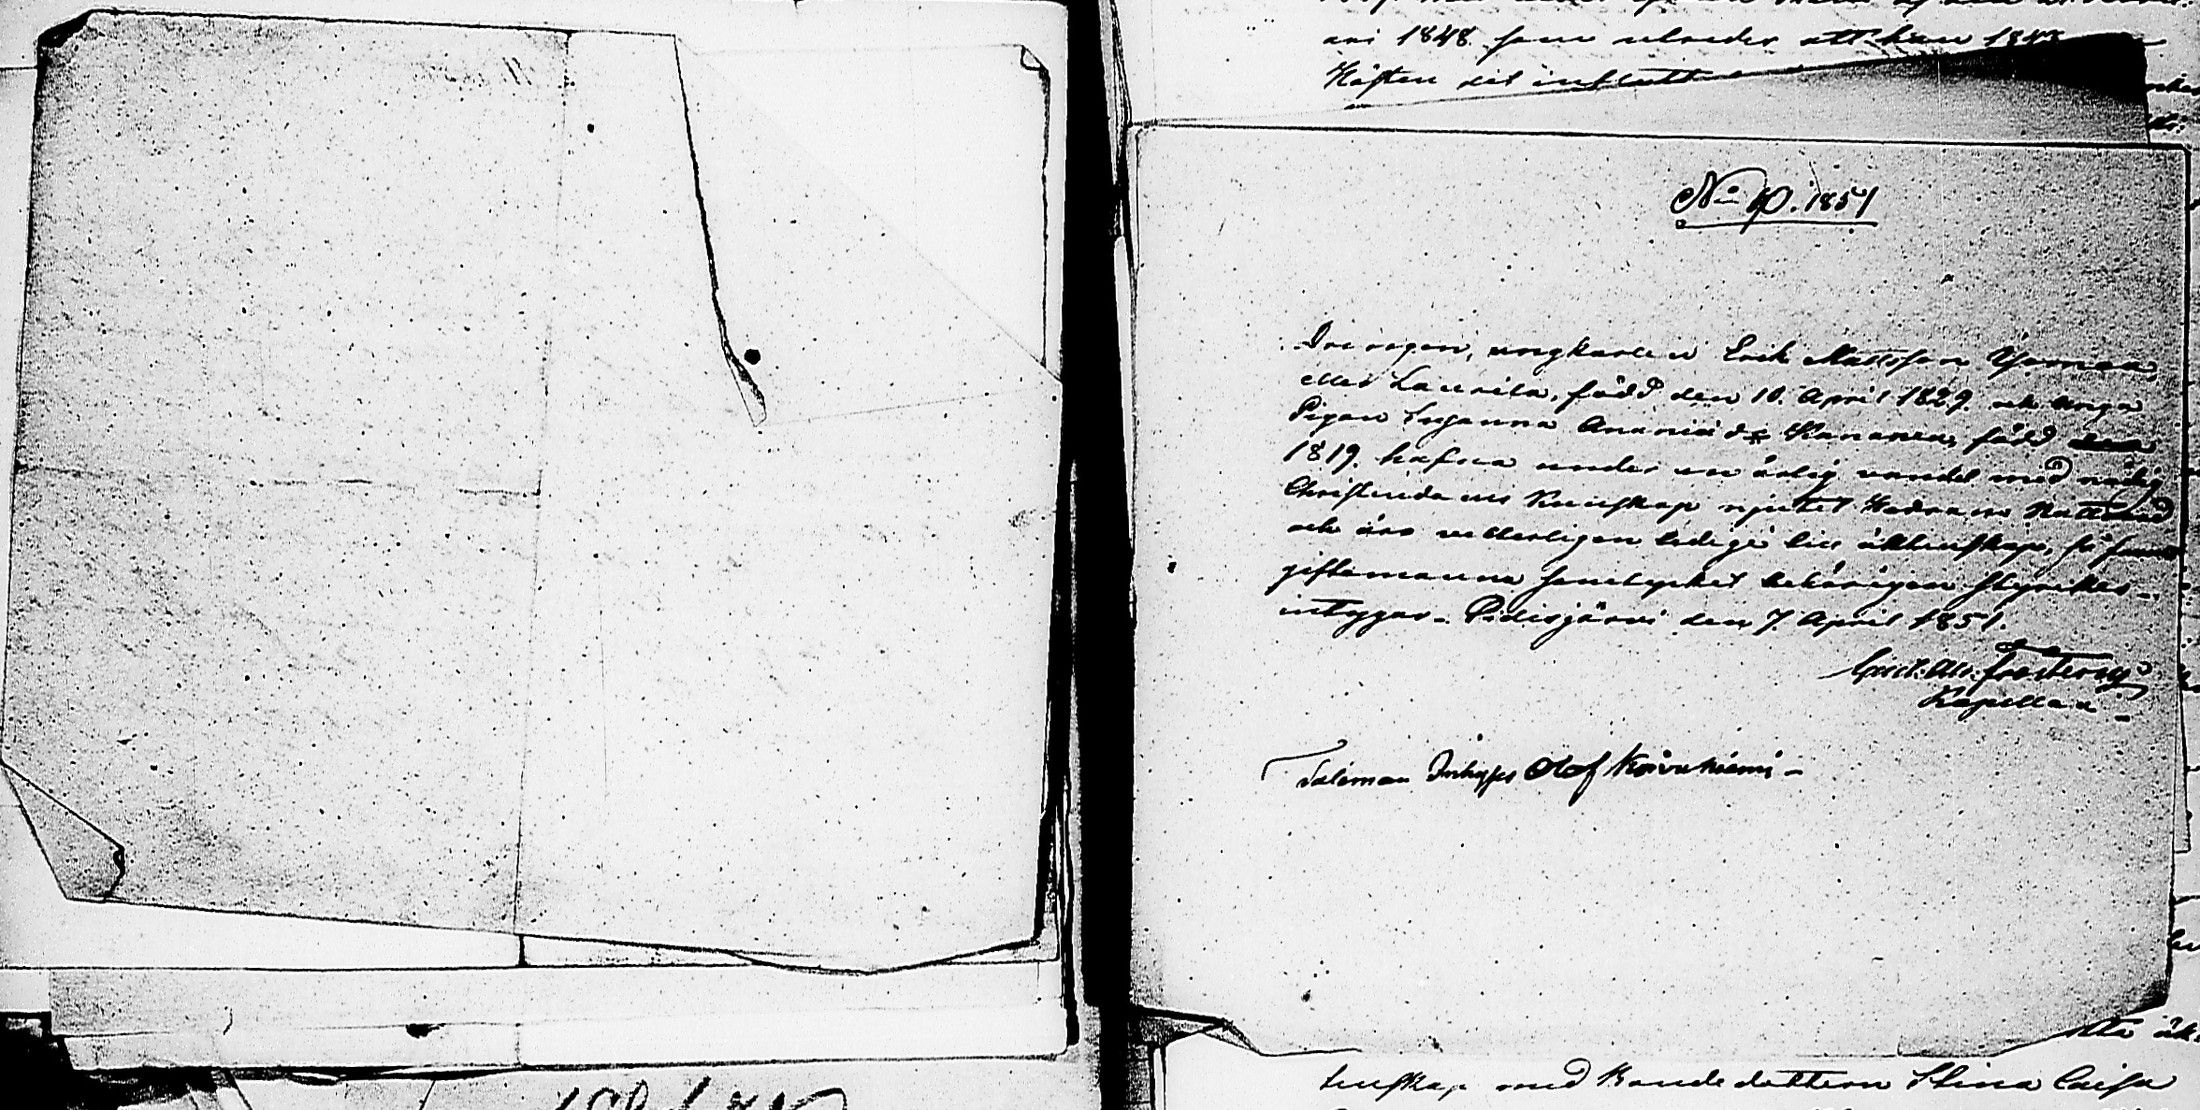 ari 1848 som utreder att han 1847
Hösten dit inflyttat
No 10. 1851
Drängen, ungkarlen Erik Mattsson Ypmaa,
eller Laurila, född den 10. April 1829. och unga
Pigan Susanna Ananiæ dr Kananen, född
1819. hafva under en ärlig vandel med nödig
Christendoms Kunskap njutit Herrans Nattvard
och äro vetterligen lediga till äktenskap, så
giftomanna samtycket behörigen styrkes
intygar. Pidisjärvi den 7. April 1851.
Frosterus
Kapellan.
Taleman Inhyses Olof Koivuniemi -
tenskap med Bonde dottern Stina Caisa